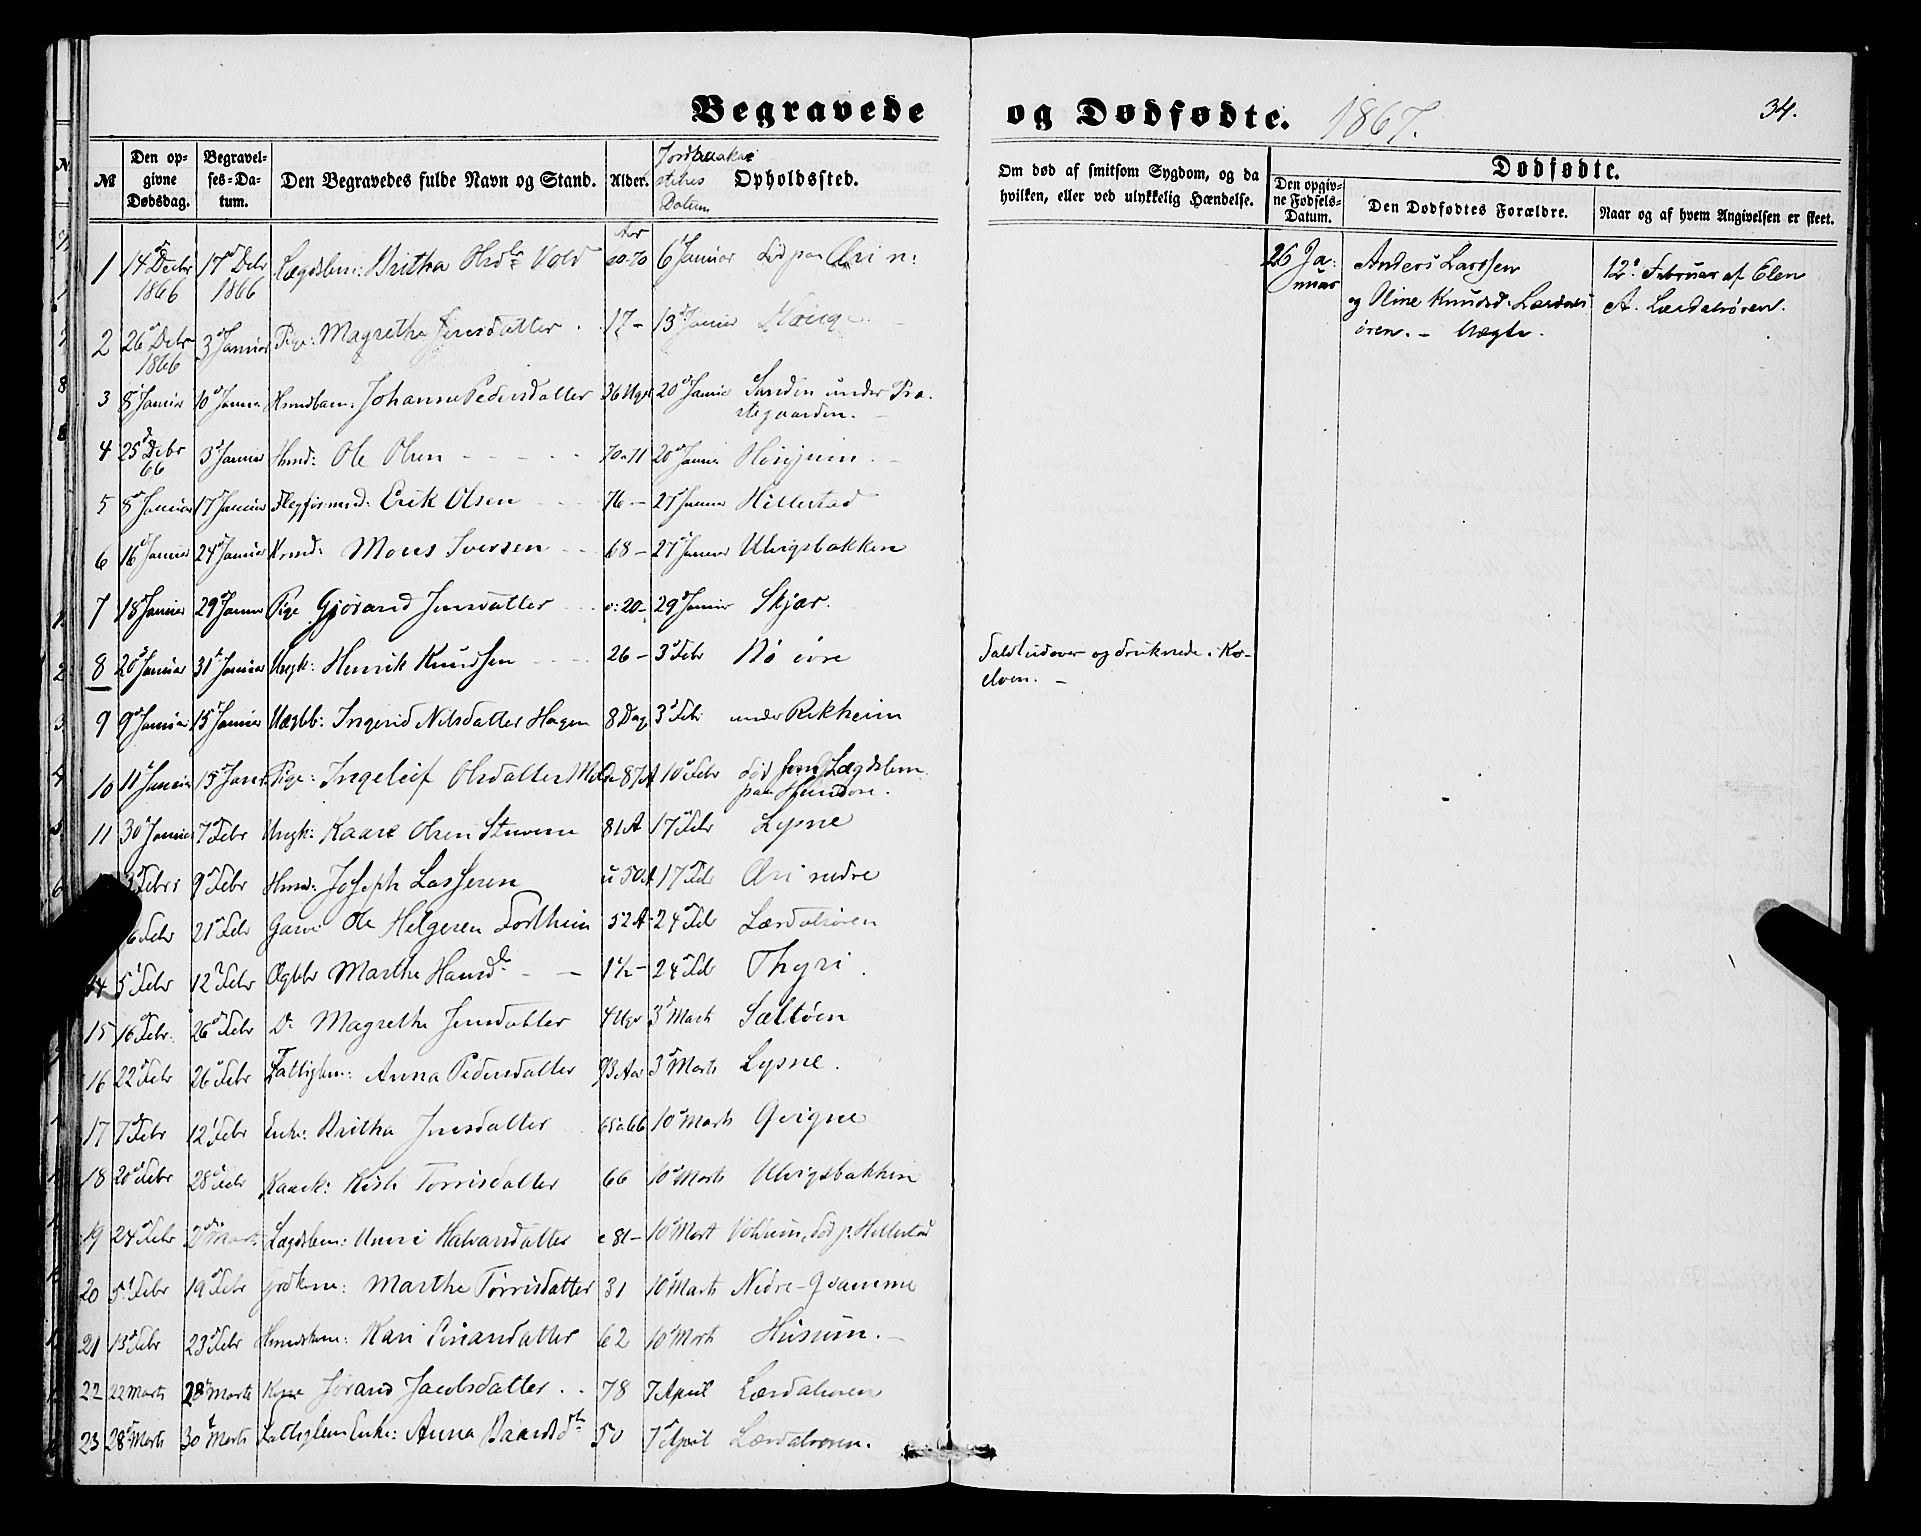 Begravede og Dødfødte. 1867. 34.
№ Den opgivne Dødsdag. Begravelses-Datum. Den Begravedes fulde Navn og Stand. Alder. Jordpaakastelses Datum Opholdssted. Om død af smitsom Sygdom, og da hvilken, eller ved ulykkelig Hændelse. Dødfødte.
Den opgivne Fødsels-Datum. Den Dødfødtes Forældre. Naar og af hvem Angivelsen er skeet.
1 14 Decbr 1866 17 Debr 1866 Lægdslem: Britha Olsdtr Vold Aar 60-70 6 Januar død paa Æri n:
26 Januar Anders Larssen og Oline Knudsd. Lærdalsøren. – Uægte. 12 Februar af Elen A. Lærdalsøren.
2 26 Debr 1866 3 Januar Pige: Magrethe Jensdatter 17 – 13 Januar Hauge
3 8 Januar 10 Januar Hmdbarn: Johanne Pedersdatter 36 Uger 20 Januar Sanden under Præstegaarden. –
4 25 Debr 66 3 Januar Hmd: Ole Olsen 70-71 20 Januar Hønjum. –
5 8 Januar 17 Januar Erik Olsen 76 – 27 Januar Hillestad
6 16 Januar 24 Januar Mons Iversen 68 – 27 Januar Ulvigsbakken
7 18 Januar 29 Januar Pige Gjørand Jensdatter o: 20 – 29 Januar Skjær.
8 20 Januar 31 Januar Ungk: Henrik Knudsen 26 – 3 Febr Bø øvre
Faldt udover og druknede i Kuvelven. –
9 9 Januar 15 Januar Uægtb: Ingerid Nilsdatter Hagen 8 Dag 3 Febr under Rikheim
10 11 Januar 15 Januar Pige: Ingeleif Olsdatter 87 A 10 Febr død som Lægdslem paa
11 30 Januar 7 Febr Ungk: Kaare Olsen Stuvene 81 A 17 Febr Lysne
3 Febr 9 Febr Hmd: Joseph Lassesen u 50 A 17 Febr Æri nedre
6 Febr 21 Febr Garver Ole Helgesen Fortheim 52 A 24 Febr Lærdalsøren
14 5 Febr 12 Febr Ægtb Marthe Hansd 1½ – 24 Feb Thyri.
15 16 Febr. 26 Febr Do Magrethe Jensdatter 4 Uger 3 Marts Sæltøen
16 22 Febr 26 Febr Fattiglem: Anna Pedersdatter 93 Aar 3 Marts Lysne.
17 7 Febr 12 Febr Enke: Britha Jensdatter 65 a 66 10 Marts Qvigne
18 20 Febr 28 Febr Kaark: Kisti Torrisdatter 66 10 Marts Ulvigsbakken
19 24 Febr 2 Marts Lægdslem: Unni Halvarsdatter c 81 – 10 Mart Voldum, død p. Hillestad
20 5 Febr 19 Febr Grdkone: Marthe Tørrisdatter 31 10 Marts Nedre-Qvamme
21 13 Febr 23 Febr Hmdskone: Kari Einarsdatter 62 10 Mrts Husum. –
22 22 Marts 28 Marts Kone Jørand Jacobsdatter 78 7 April Lærdalsøren
23 28 Marts 30 Marts Fattiglem Enke: Anna Baardsd 50 7 April Lærdalsøren.